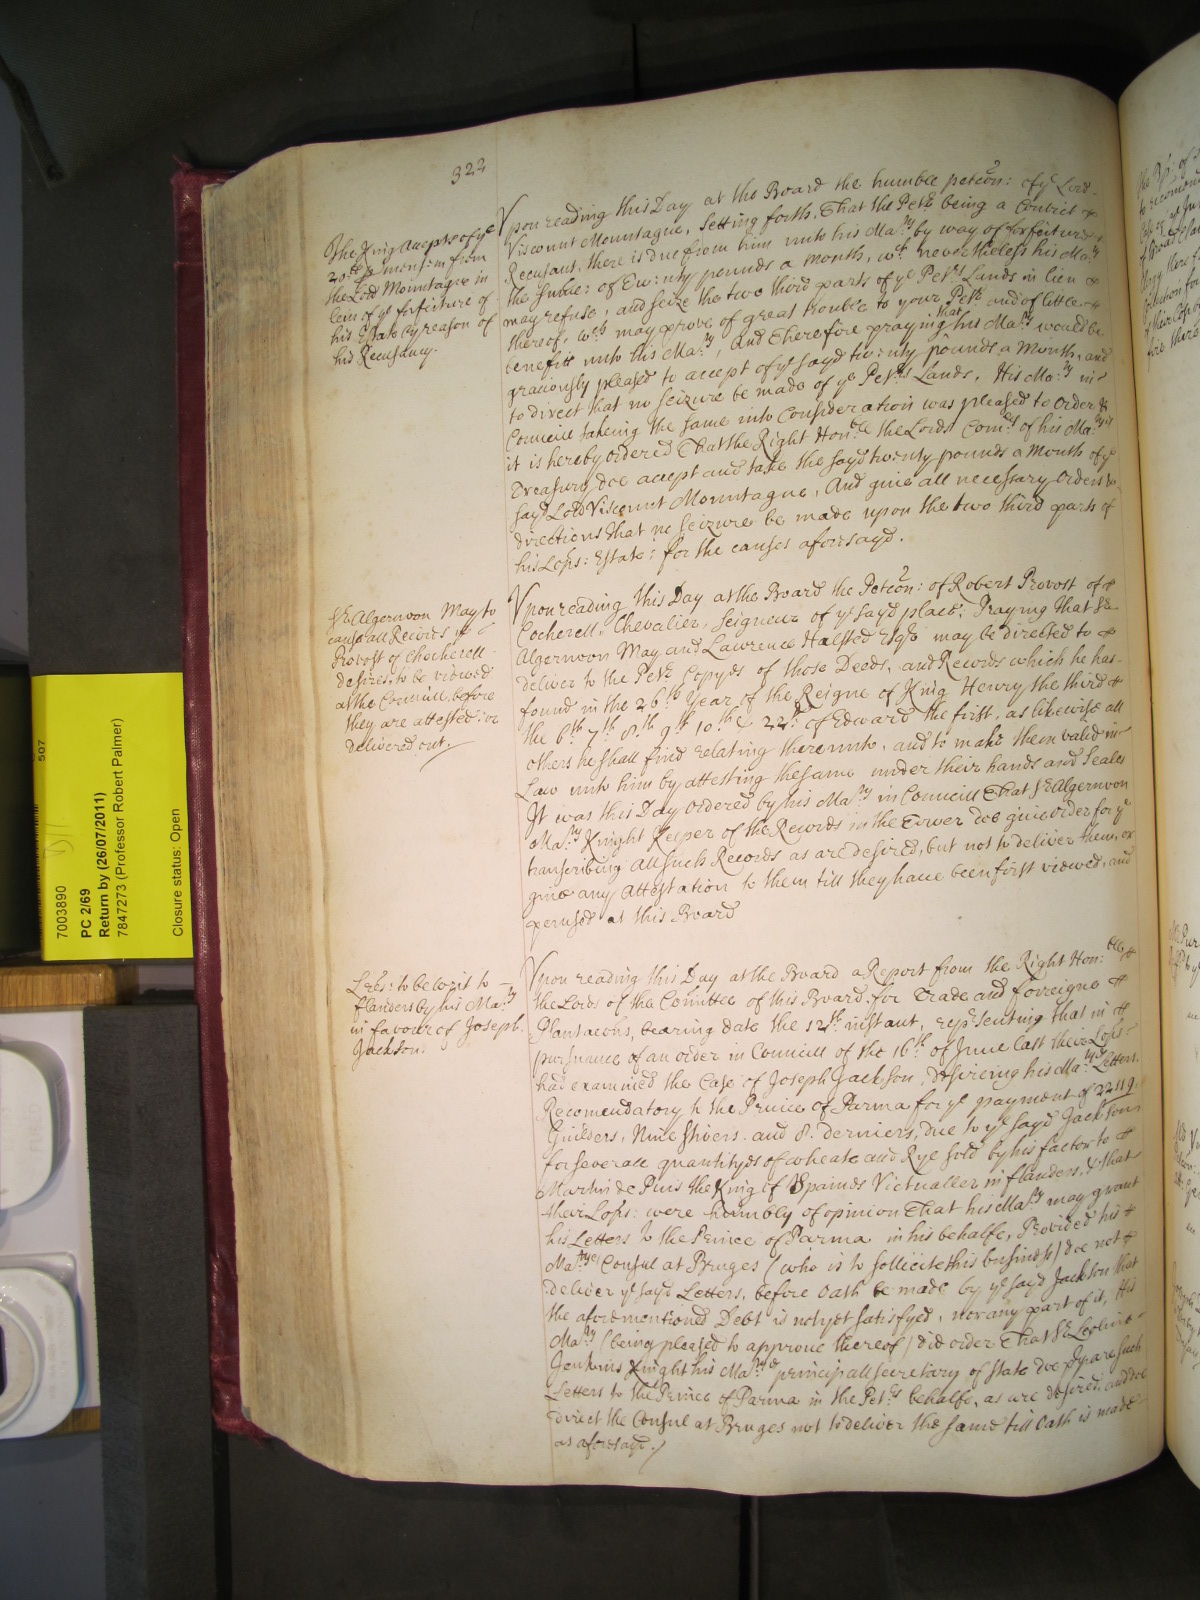 322
The King Accepts of ye
20.£ p mensem from
the Lord Mountague in
leiu of ye forfeiture of
his Estate by reason of
his Recusancy.
Upon reading this Day at the Board the humble petcon: of ye Lord
Viscount Mountague, Setting forth, That the Petr being a Convict
Recusant, there is due from him unto his Ma:ty by way of forfeiture
the Summe: of Twenty pounds a Month, wch nevertheless his Ma:ty
may refuse, and seize the two third parts of ye Petrs Lands in lieu
thereof, wch may prove of great trouble to your Petr and of little
benefitt unto his Ma:ty, And Therefore praying that his Ma:ty would be
graciously pleased to accept of ye sayd twenty pounds a Month, and
to direct that no seizure be made of ye Petrs Lands, His Ma:ty in
Councill taking the same into Consideration was pleased to Order &
it is hereby ordered That the Right Honble the Lords Comrs of his Ma:tys
Treasury doe accept and take the sayd twenty pounds a Month of ye
sayd Lord Viscount Mountague, And give all necessary Orders &
directions that no seizure be made upon the two third parts of
his Lops: Estate: for the causes aforesayd.
Sr Algernoon May to
cause all Records ye
Provost of Chocherell
desires, to be viewed
at the Councill, before
they are attested: or
delivered out
Upon reading this Day at the Board the Petcon: of Robert Provost of
Cocherell, Chevalier, Seigneur of ye sayd place, Praying that Sr
Algernoon May and Lawrence Halsted Esqr may be directed to
deliver to the Petr Copyes of those Deeds, and Records which he has
found in the 26th Year of the Reigne of King Henry the third
the 6th 7th 8th 9th 10th & 22d of Edward the first, as likewise all
others he shall find relating thereunto, and to make them valid in
Law unto him by attesting the same under their hands and Seales
It was this Day ordered by his Ma:ty in Councill That Sr Algernoon
May Knight Keeper of the Records in the Tower doe give order for ye
transcribing all such Records as are desired, but not to deliver them, or
give any Attestation to them till they have been first viewed, and
perused at this Board
Lres: to be writ to
Flanders by his Ma:ty
in favour of Joseph
Jackson.
Upon reading this Day at the Board a Report from the Right Hon:ble
the Lords of the Comittee of this Board for Trade and foreigne
Plantacons, bearing date the 12th instant, representing that in
pursuance of an order in Councill of the 16th of June last their Lops
had examined the Case of Joseph Jackson, desireing his Ma:tys Letters
Recomendatory to the Prince of Parma for ye payment of 22119
Guilders, Nine stivers and 8. derniers, due to ye sayd Jackson
for severall quantityes of wheate and Rye sold by his factor to
Martin de Puis the King of Spaines Victualler in flanders, & that
their Lops: were humbly of opinion That his Ma:ty may grant
his Letters to the Prince of Parma in his behalfe, Provided his
Ma:tyes Consul at Bruges (who is to sollicite this business) doe not
deliver ye sayd Letters, before Oath be made by ye sayd Jackson that
the aforementioned Debt is not yet satisfyed, nor any part of it, His
Ma:ty (being pleased to approve thereof) did order That Sr Leoline
Jenkins Knight his Ma:tys principall secretary of state doe prepare such
Letters to the Prince of Parma in the Petrs behalfe, as are desired, and doe
direct the Consul at Bruges not to deliver the same till Oath is made
as aforesayd./
507
7003890
PC 2/69
Return by (26/07/2011)
7847273 (Professor Robert Palmer)
Closure status: Open